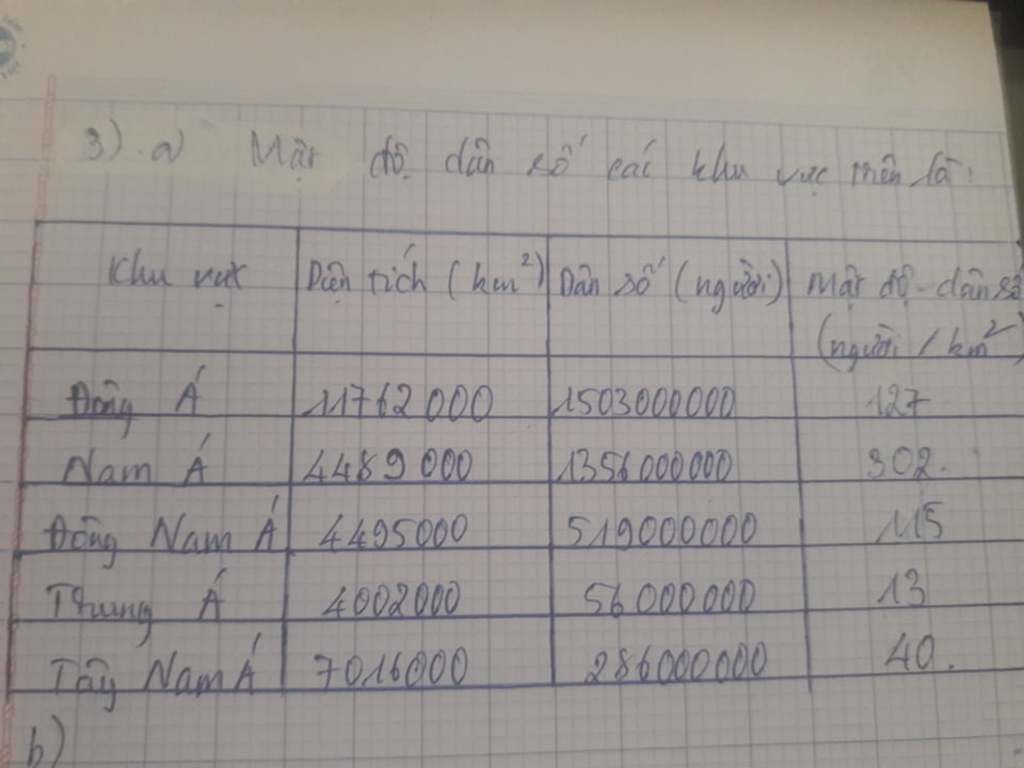 3). a) Mật độ dân số các khu vực trên là:
Khu vực Diện tích (km²) Dân số (người) Mật độ dân số
(người / km²)
Đông Á 11762 000 1503000000 127
Nam Á 4489 000 1356000000 302.
Đông Nam Á 4495000 519000000 115
Trung Á 4002000 56000000 13
Tây Nam Á 7016000 286000000 40.
b)